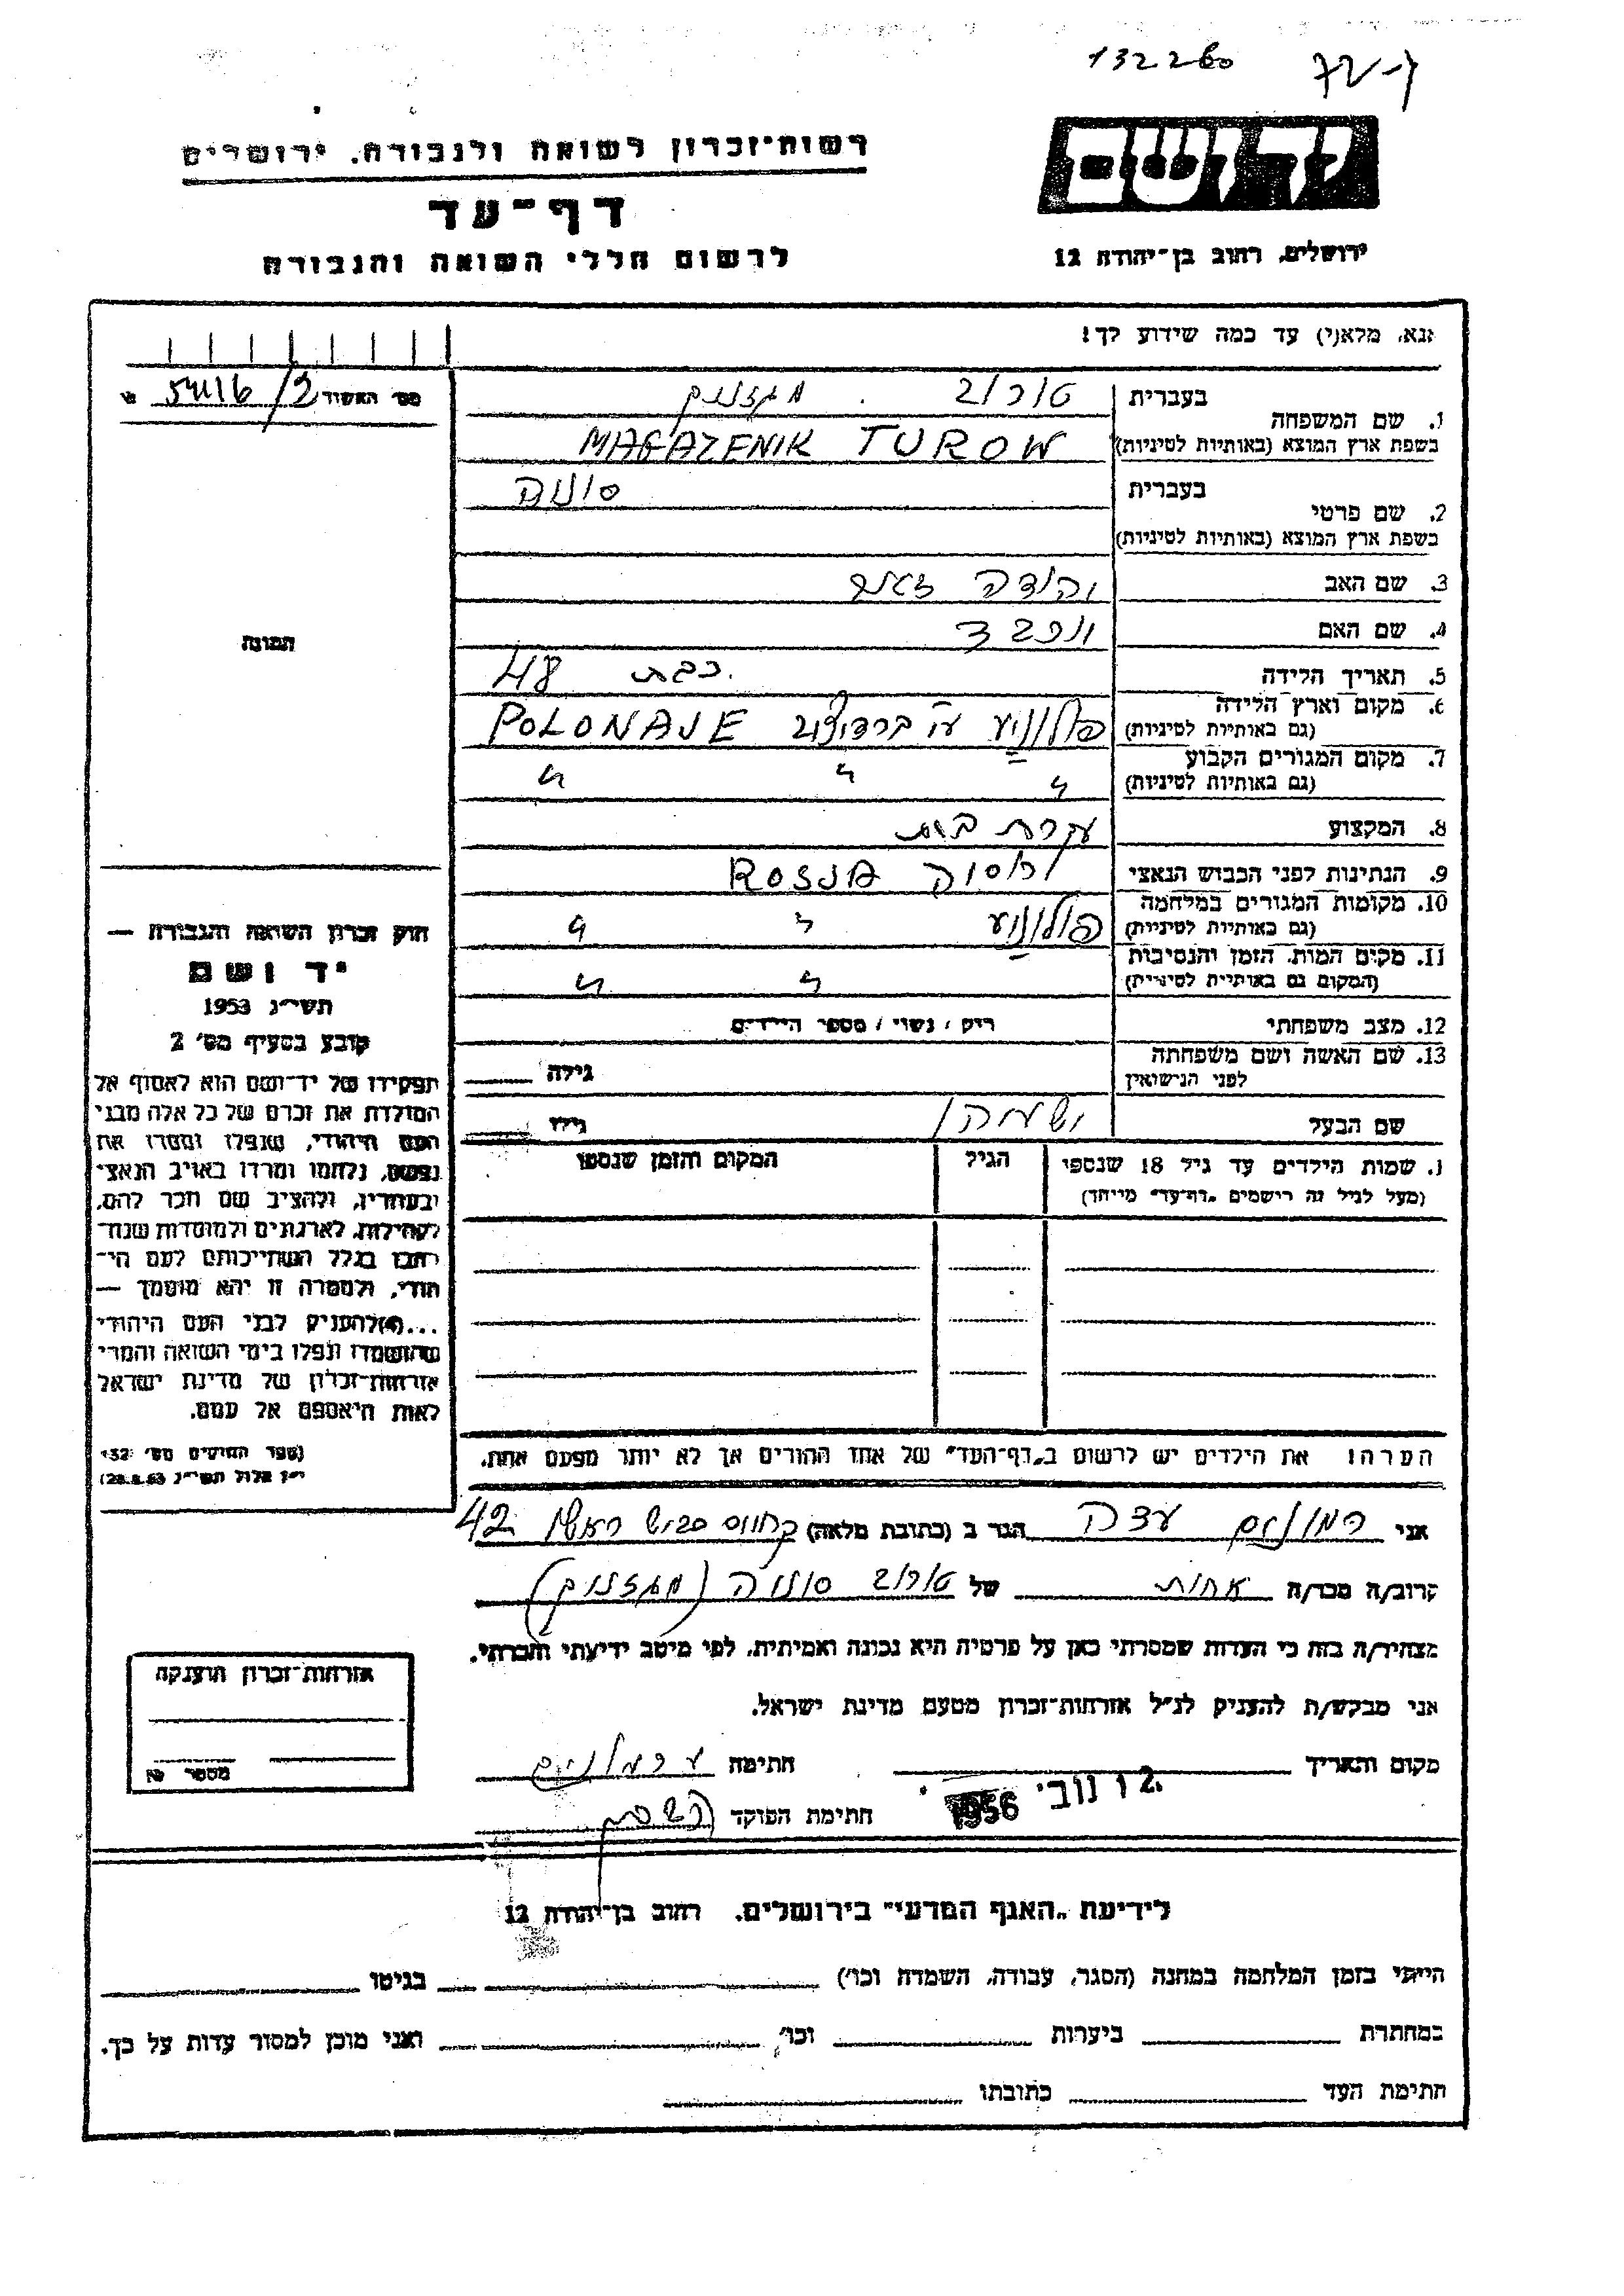 132260
יד ושם
רשות-זכרון לשואה ולגבורה, ירושלים
דף-עד
לרשום חללי השואה והגבורה
ירושלים, רחוב בן-יהודה 12
נא, מלא(י) עד כמה שידוע לך!
מס' האשור
1. שם המשפחה
בעברית טורוב . מגזניק
בשפת ארץ המוצא (באותיות לטיניות) MAGAZENIK TUROW
2. שם פרטי
בעברית סוניה
בשפת ארץ המוצא (באותיות לטיניות)
3. שם האב יהודה זאב
4. שם האם
5. תאריך הלידה כבת 48
6. מקום וארץ הלידה
(גם באותיות לטיניות) פולונייע ע"י ברדיצ'וב POLONAJE
7. מקום המגורים הקבוע
(גם באותיות לטיניות) " " "
8. המקצוע עקרת בית
9. הנתינות לפני הכבוש הנאצי רוסיה ROSJA
10. מקומות המגורים במלחמה
(גם באותיות לטיניות) פולונייע " "
11. מקום המות, הזמן והנסיבות
(המקום גם באותיות לטיניות) " "
12. מצב משפחתי רוק / נשוי / מספר הילדים
13. שם האשה ושם משפחתה
לפני הנישואין
גילה
שם הבעל
גילו
1. שמות הילדים עד גיל 18 שנספו
(מעל לגיל זה רישמים "דף-עד" מייחד)
הגיל
המקום והזמן שנספו
תמונה
חוק זכרון השואה והגבורה —
יד ושם
תשי"ג 1953
קובע בסעיף מס' 2
תפקידו של יד-ושם הוא לאסוף אל
המולדת את זכרם של כל אלה מבני
העם היהודי, שנפלו ומסרו את
נפשם, נלחמו ומרדו באויב הנאצי
ובעוזריו, ולהציב שם וזכר להם,
לקהילות, לארגונים ולמוסדות שנח-
רבו בגלל השתייכותם לעם הי-
הודי, ולמטרה זו יהא מוסמך —
...(4) להעניק לבני העם היהודי
שהושמדו ונפלו בימי השואה והמרי
אזרחות-זכרון של מדינת ישראל
לאות היאספם אל עמם.
(ספר החוקים מס' 132
י"ז אלול תשי"ג 28.8.53)
הערה: את הילדים יש לרשום ב"דף-העד" של אחד ההורים אך לא יותר מפעם אחת.
אני עדה הגר ב (כתובת מלאה) 42
קרוב/ה מכר/ה אחות של טורוב סוניה (מגזניק)
מצהיר/ה בזה כי העדות שמסרתי כאן על פרטיה היא נכונה ואמיתית, לפי מיטב ידיעתי והכרתי.
אני מבקש/ת להעניק לנ"ל אזרחות-זכרון מטעם מדינת ישראל.
מקום והתאריך חתימה
נוב' 1956
חתימת הפוקד
אזרחות-זכרון הוענקה
מספר
לידיעת "האגף המדעי" בירושלים, רחוב בן-יהודה 12
הייתי בזמן המלחמה במחנה (הסגר, עבודה, השמדה וכו') בגיטו
במחתרת ביערות וכו' ואני מוכן למסור עדות על כך.
חתימת העד כתובתו